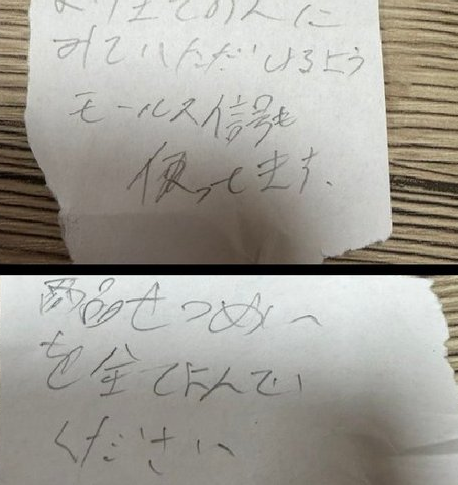 より全ての人に
みていただけるよう
モールス信号も
使ってます.
商品せつめい
を全てよんで
ください